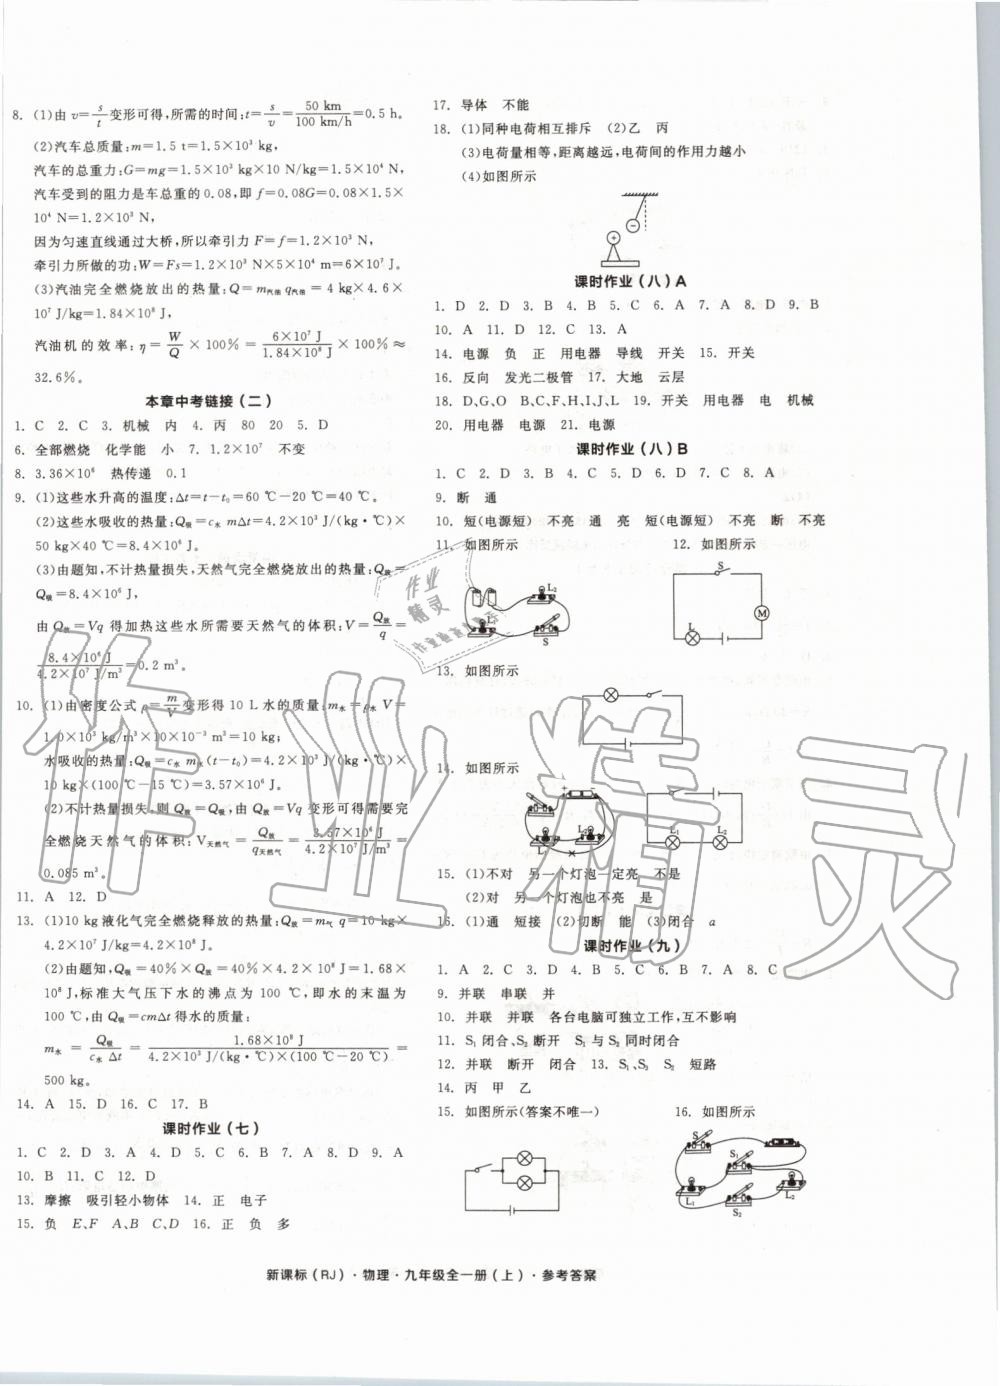 8. (1)由 v=s/t 变形可得,所需的时间:t=s/v=50 km/100 km/h=0.5 h。
(2)汽车总质量:m=1.5 t=1.5×10³ kg,
汽车的总重力:G=mg=1.5×10³ kg×10 N/kg=1.5×10⁴ N,
汽车受到的阻力是车总重的 0.08,即 f=0.08G=0.08×1.5×
10⁴ N=1.2×10³ N,
因为匀速直线通过大桥,所以牵引力 F=f=1.2×10³ N,
牵引力所做的功:W=Fs=1.2×10³ N×5×10⁴ m=6×10⁷ J。
(3)汽油完全燃烧放出的热量:Q=m汽油 q汽油=4 kg×4.6×
10⁷ J/kg=1.84×10⁸ J,
汽油机的效率:η=W/Q×100%=6×10⁷ J/1.84×10⁸ J×100%≈
32.6%。
本章中考链接(二)
1. C 2. C 3. 机械 内 4. 丙 80 20 5. D
6. 全部燃烧 化学能 小 7. 1.2×10⁷ 不变
8. 3.36×10⁶ 热传递 0.1
9. (1)这些水升高的温度:Δt=t-t₀=60 ℃-20 ℃=40 ℃。
(2)这些水吸收的热量:Q吸=c水 mΔt=4.2×10³ J/(kg·℃)×
50 kg×40 ℃=8.4×10⁶ J。
(3)由题知,不计热量损失,天然气完全燃烧放出的热量:Q放=
Q吸=8.4×10⁶ J,
由 Q放=Vq 得加热这些水所需要天然气的体积:V=Q放/q=
8.4×10⁶ J/4.2×10⁷ J/m³=0.2 m³。
10. (1)由密度公式 ρ=m/V 变形得 10 L 水的质量:m水=ρ水 V=
1.0×10³ kg/m³×10×10⁻³ m³=10 kg;
水吸收的热量:Q吸=c水 m水(t-t₀)=4.2×10³ J/(kg·℃)×
10 kg×(100 ℃-15 ℃)=3.57×10⁶ J。
(2)不计热量损失,则 Q放=Q吸,由 Q放=Vq 变形可得需要完
全燃烧天然气的体积:V天然气=Q放/q天然气=3.57×10⁶ J/4.2×10⁷ J/m³=
0.085 m³。
11. A 12. D
13. (1)10 kg 液化气完全燃烧释放的热量:Q放=m气 q=10 kg×
4.2×10⁷ J/kg=4.2×10⁸ J。
(2)由题知,Q吸=40%×Q放=40%×4.2×10⁸ J=1.68×
10⁸ J,标准大气压下水的沸点为 100 ℃,即水的末温为
100 ℃,由 Q吸=cmΔt 得水的质量:
m水=Q吸/c水 Δt=1.68×10⁸ J/4.2×10³ J/(kg·℃)×(100 ℃-20 ℃)=
500 kg。
14. A 15. D 16. C 17. B
课时作业(七)
1. C 2. D 3. A 4. D 5. C 6. B 7. A 8. D 9. A
10. B 11. C 12. D
13. 摩擦 吸引轻小物体 14. 正 电子
15. 负 E、F A、B C、D 16. 正 负 多
17. 导体 不能
18. (1)同种电荷相互排斥 (2)乙 丙
(3)电荷量相等,距离越远,电荷间的作用力越小
(4)如图所示
课时作业(八)A
1. D 2. D 3. B 4. B 5. C 6. A 7. A 8. D 9. B
10. A 11. D 12. C 13. A
14. 电源 负 正 用电器 导线 开关 15. 开关
16. 反向 发光二极管 17. 大地 云层
18. D、G、O B、C、E、F、H、I、J、L 19. 开关 用电器 电 机械
20. 用电器 电源 21. 电源
课时作业(八)B
1. C 2. D 3. B 4. C 5. D 6. D 7. C 8. A
9. 断 通
10. 短(电源短) 不亮 通 亮 短(电源短) 不亮 断 不亮
11. 如图所示 12. 如图所示
L₂ L₁ S
S M L
13. 如图所示
14. 如图所示
+ - L₂ L₁
L₁ L₂
15. (1)不对 另一个灯泡一定亮 不是
(2)对 另一个灯泡也不亮 是
16. (1)通 短接 (2)切断 能 (3)闭合 a
课时作业(九)
1. A 2. C 3. D 4. B 5. C 6. B 7. A 8. C
9. 并联 串联 并
10. 并联 并联 各台电脑可独立工作,互不影响
11. S₁ 闭合、S₂ 断开 S₁ 与 S₂ 同时闭合
12. 并联 断开 闭合 13. S₁、S₃ S₂ 短路
14. 丙 甲 乙
15. 如图所示(答案不唯一) 16. 如图所示
S S₁ L₁ S₂ L₂
新课标(RJ)·物理·九年级全一册(上)·参考答案
作业精灵
作业精灵